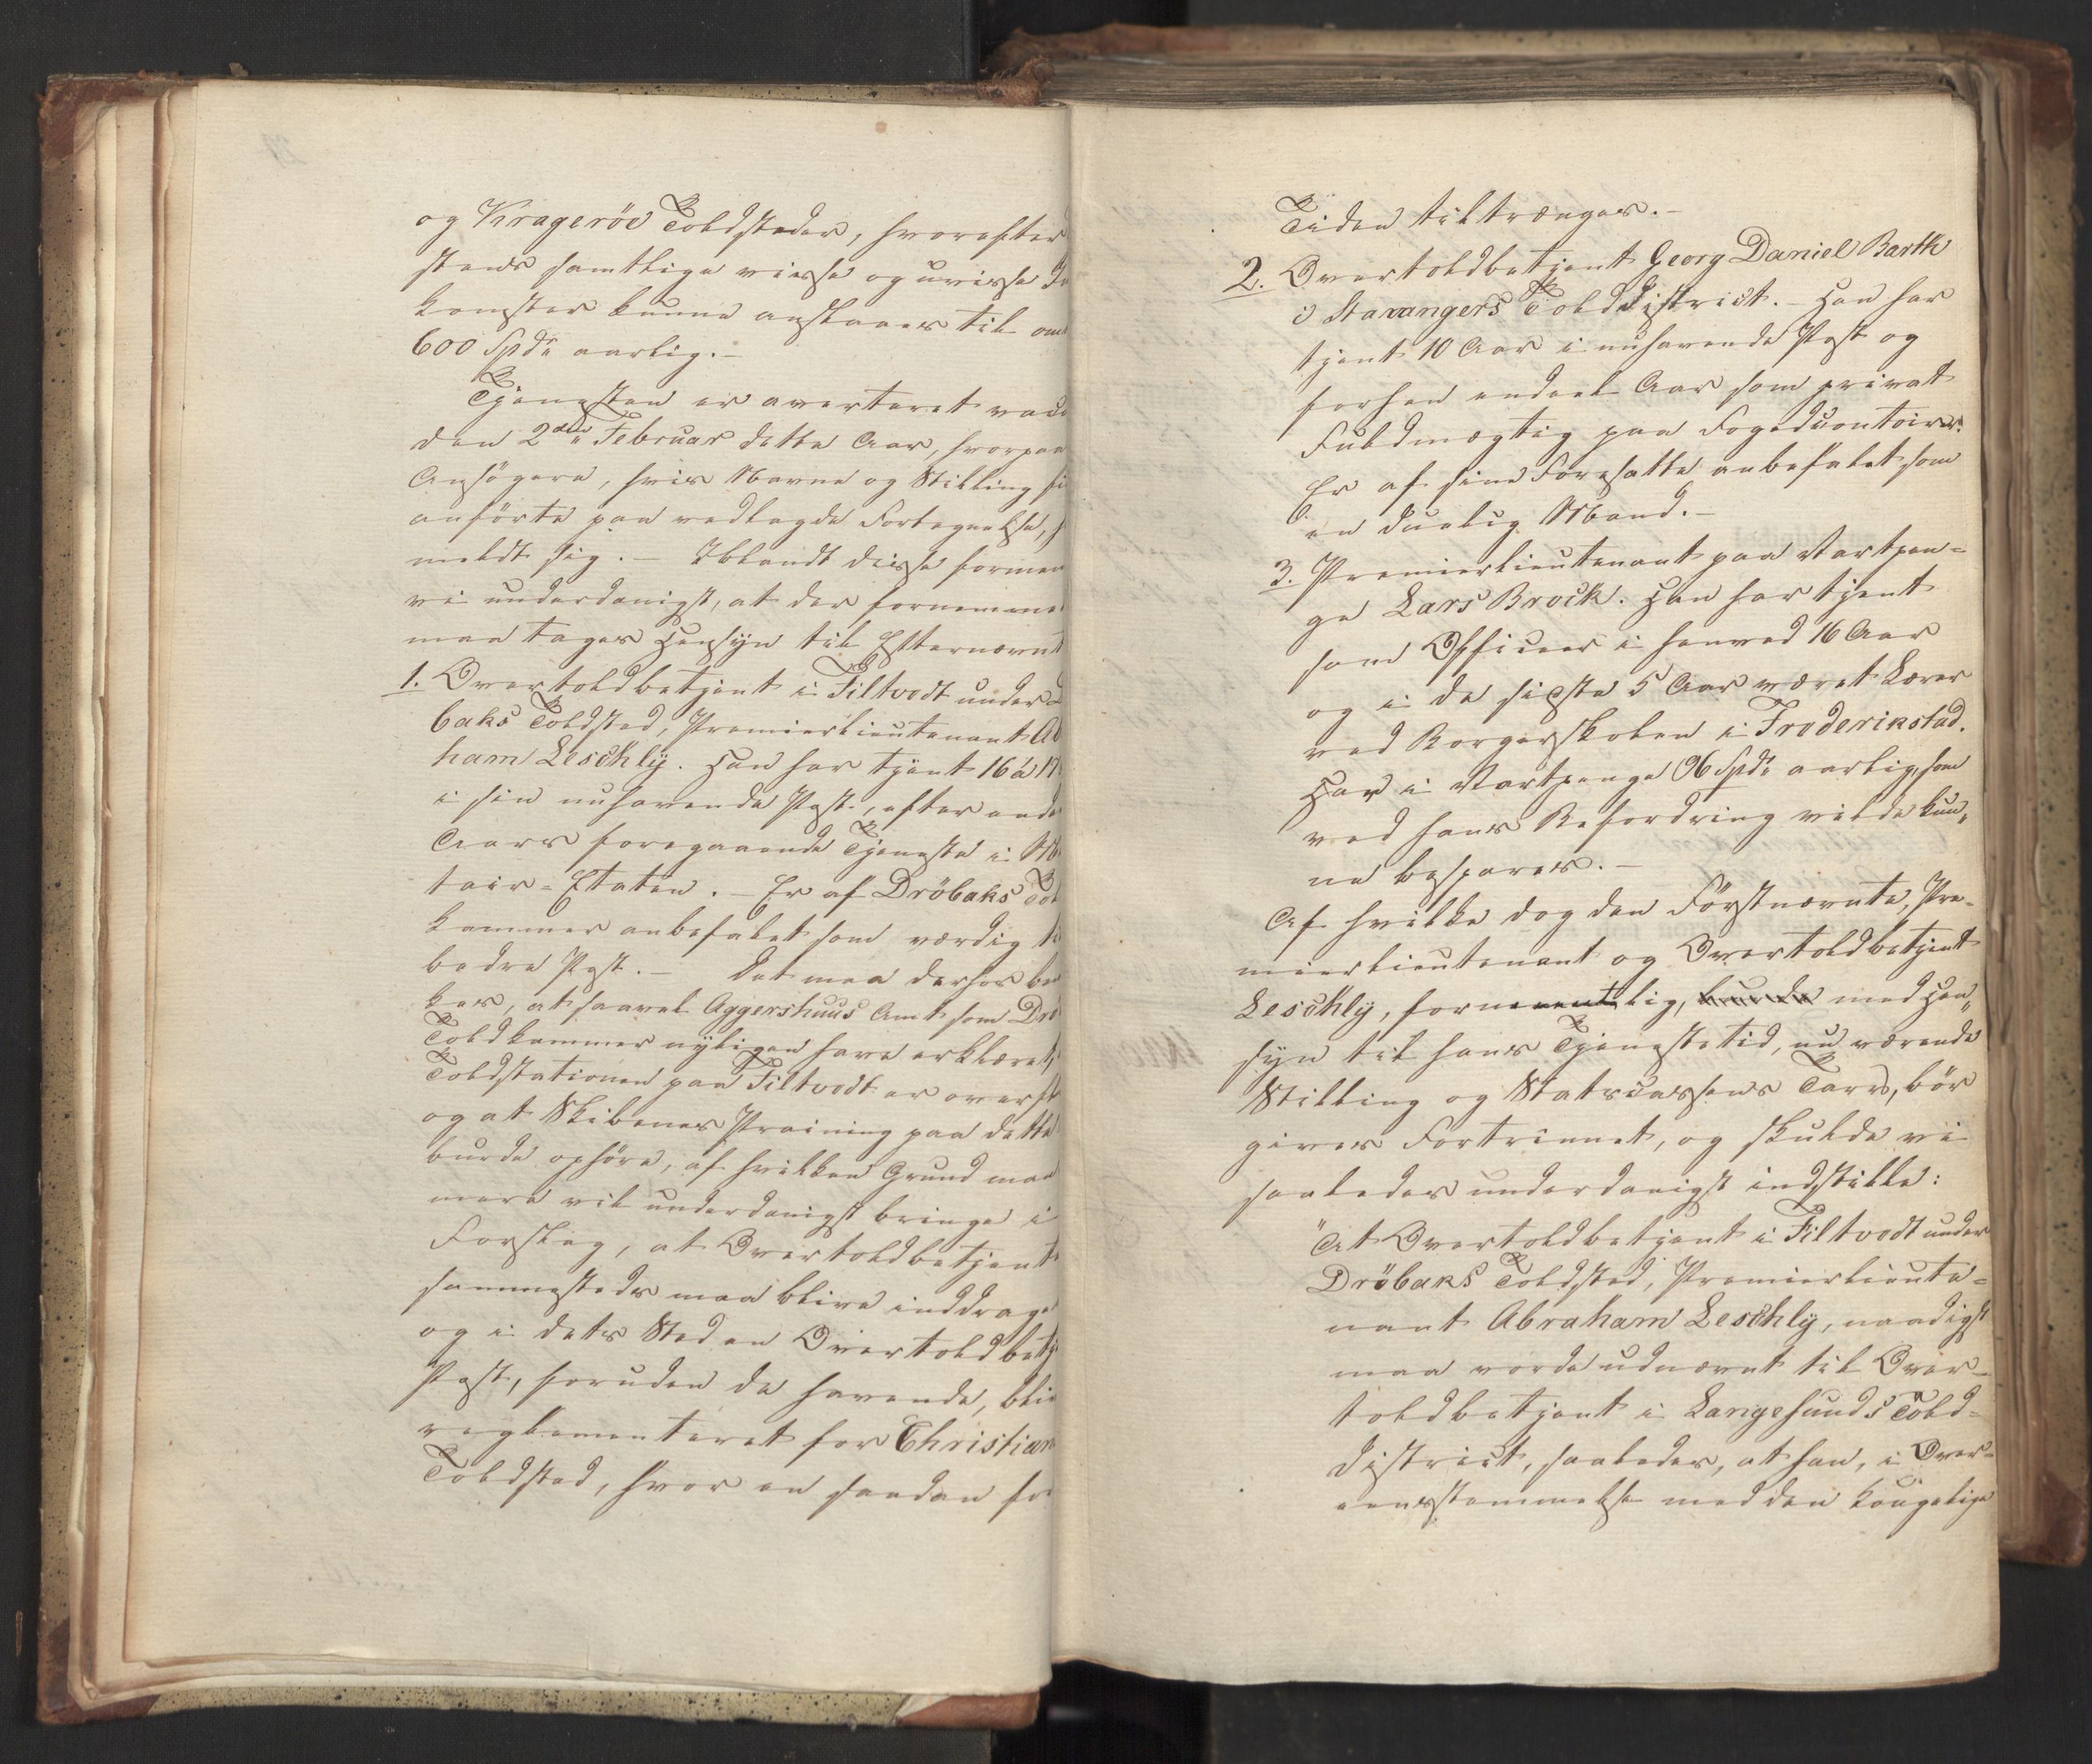 og Kragerøe Toldsteder, hvorefter
stens samtlige visse og uvisse In
komster kunne anslaaes til om
600 Spdr aarlig.-
Tjenesten er averteret vaca
den 2den Februar dette Aar, hvorpaa
Ansøgere, hvis Navne og Stilling fi
anførte paa vedlagde Fortegnelse, h
meldt sig. - Iblandt disse formen
vi underdanigst, at der fornemme
maa tages Hensyn til Efternævnt
1. Overtoldbetjent i Filtvedt under
baks Toldsted, Premierlieutenant Ab
ham Leschly. Han har tjent 16 à 17
i sin nuhavende Post, efter ende
Aars foregaaende Tjeneste i M
tair-Etaten. - Er af Drøbaks Tol
kammer anbefalet som værdig ti
bedre Post. - Det maa derhos be
kes, at saavel Aggershuus Amt som Drö
Toldkammer nyligen have erklæret,
Toldstationen paa Filtvedt er overfl
og at Skibenes Praining paa dette
burde ophøre, af hvilken Grund man
mere vil underdanigst bringe i
Forslag, at Overtoldbetjent
sammesteds maa blive inddrage
og i dets Sted en Overtoldbetj
Post, foruden de havende, bli
reglementeret for Christian
Toldsted, hvor en saadan for
Tiden tiltrænges.-
2. Overtoldbetjent Georg Daniel Barth
i Stavangers Tolddistrict. - Han har
tjent 10 Aar i nuhavende Post og
forhen endeel Aar som privat
Fuldmægtig paa Fogedcontoirer.
Er af sine Foresatte anbefalet som
en duelig Mand.-
3. Premierlieutenant paa Vartpen-
ge Lars Brock. Han har tjent
som Officeer i henved 16 Aar
og i de sidste 5 Aar været Lærer
ved Borgerskolen i Frederikstad.
Har i Vartpenge 96 Spdr aarlig, som
ved hans Befordring vilde kun„
ne bespares.-
Af hvilke dog den Førstnævnte, Pre-
mierlieutenant og Overtoldbetjent
Leschly, formeentlig, burde med Hen„
syn til hans Tjenestetid, nu værende
Stilling og Statscassens Tarv, bør
gives Fortrinnet, og skulde vi
saaledes underdanigst indstille:
"At Overtoldbetjent i Filtvedt under
Drøbaks Toldsted, Premierlieute-
nant Abraham Leschly, naadigst
maa vorde udnævnt til Over-
toldbetjent i Langesunds Told-
district, saaledes, at han, i Over-
eensstemmelse med den kongelige